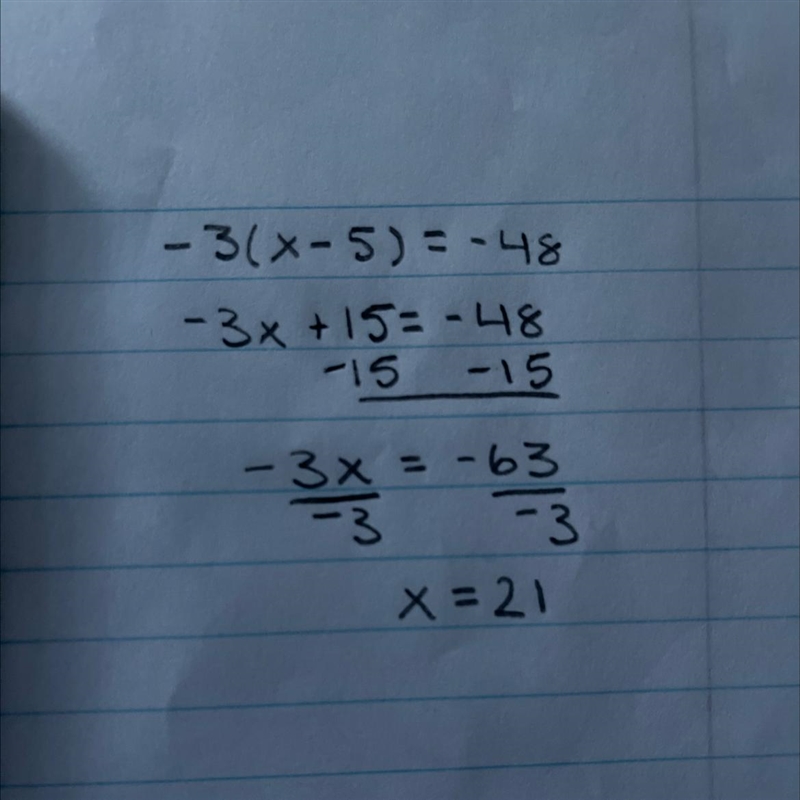 -3(x-5)=-48
-3x+15=-48
-15 -15
-3x = -63
-3 -3
x=21